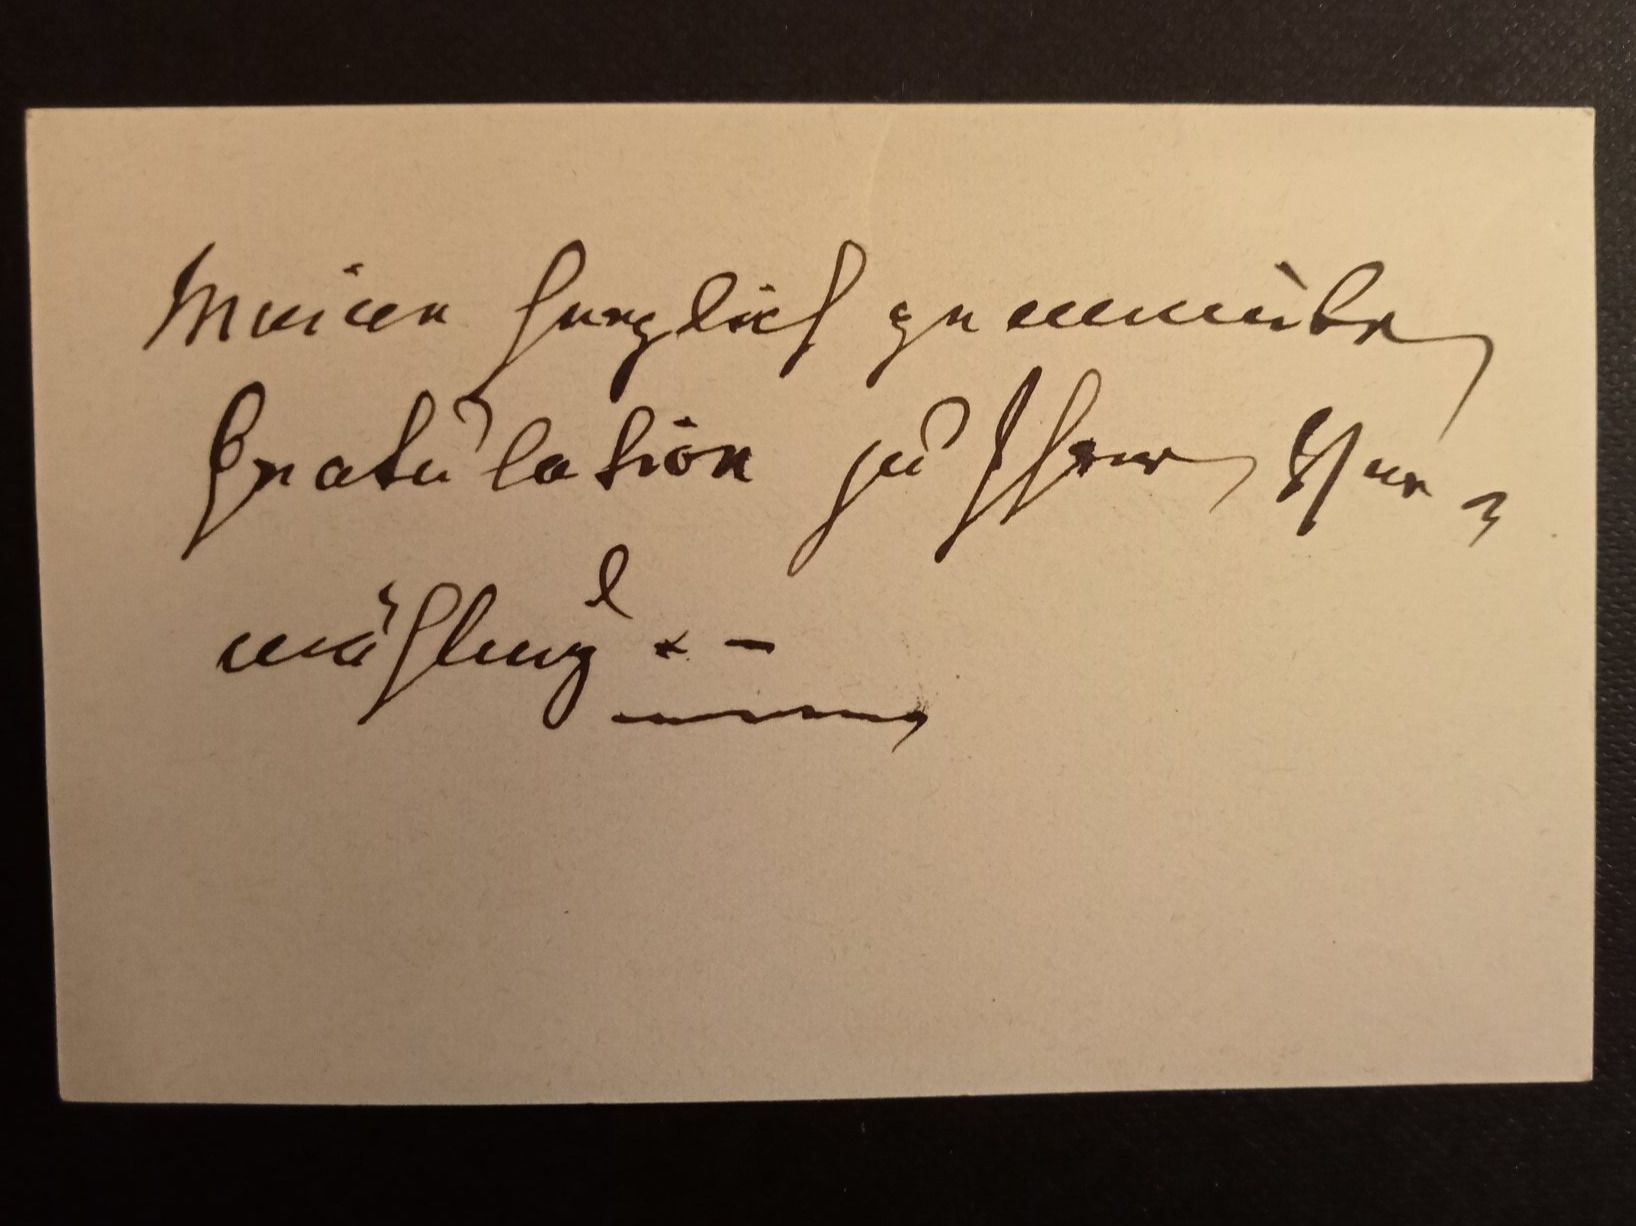 Meine herzlich gemeinte
Gratulation zu Ihrer Ver-
mählung. –